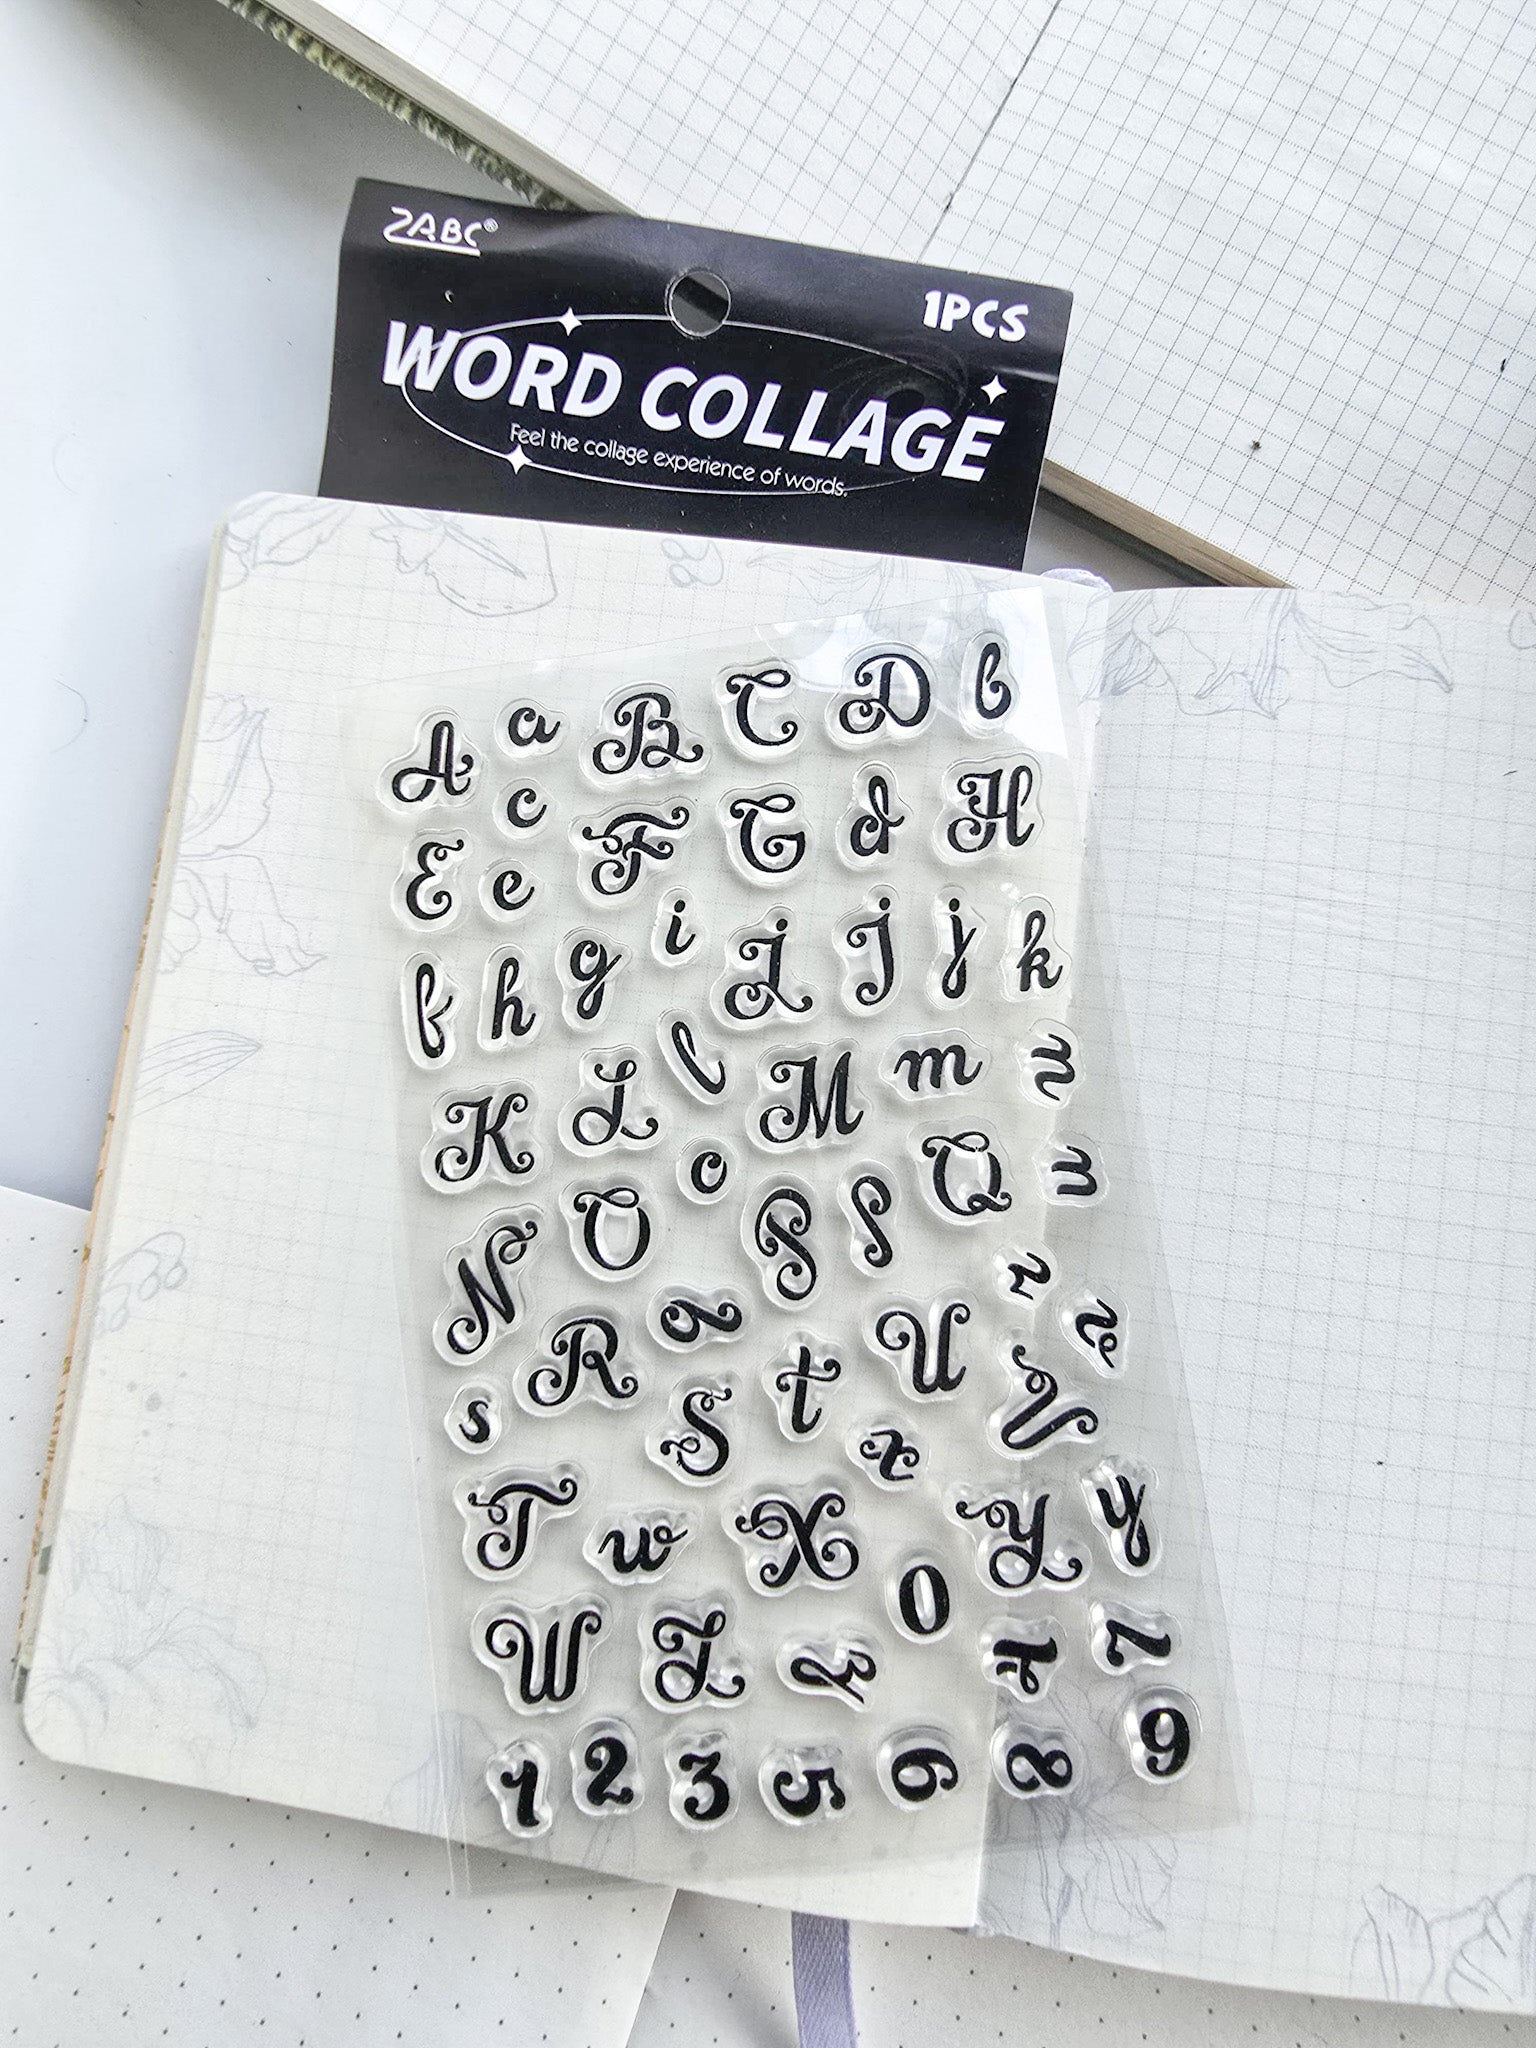 ZABC®
1PCS
WORD COLLAGE
Feel the collage experience of words.
A a B C D b
E c F G d H
e
f h g i I J j k
K L l M m n
N O o P p Q u
R q U r v
s S t x V
T w X Y y
W Z z 0 4 7
1 2 3 5 6 8 9